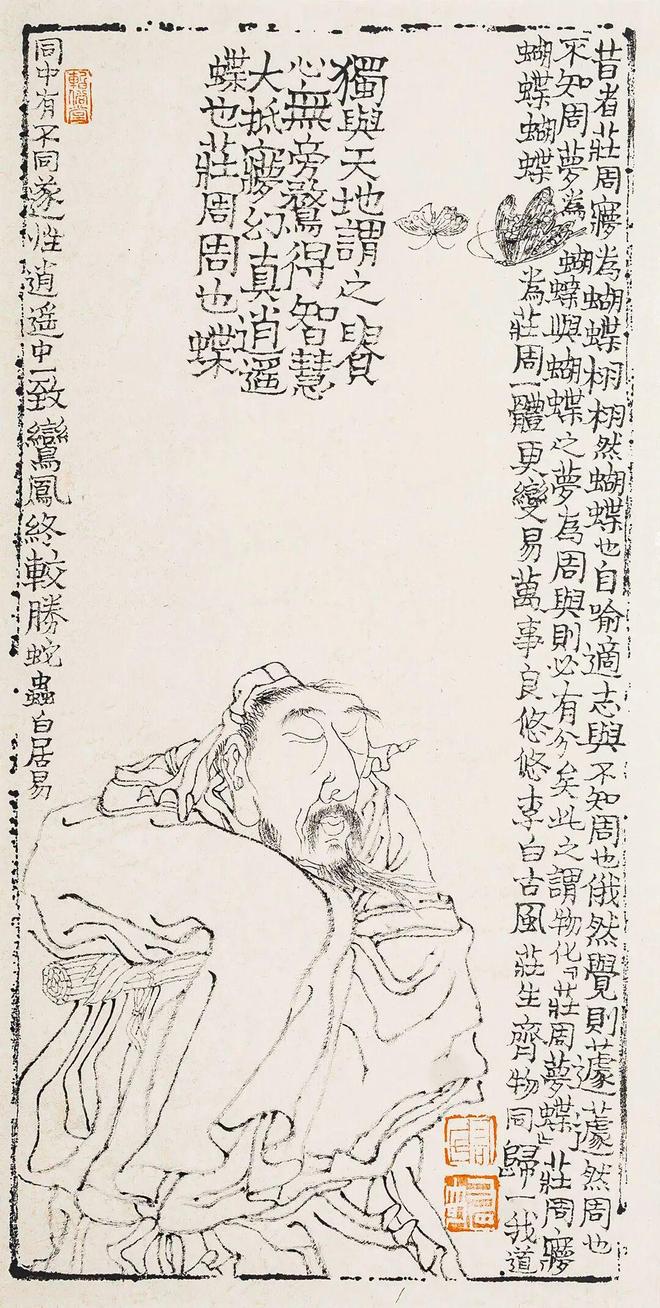 昔者莊周㝱為蝴蝶栩栩然蝴蝶也自喻適志與不知周也俄然覺則蘧蘧然周也
不知周夢為蝴蝶與蝴蝶之夢為周與則必有分矣此之謂物化「莊周夢蝶」莊周㝱
蝴蝶蝴蝶為莊周一體更變易萬事良悠悠李白古風莊生齊物同歸一我道
獨與天地謂之賢
心無旁鶩得智慧
大抵㝱幻真逍遥
蝶也莊周周也蝶
同中有不同遂性逍遥中一致鸞鳳終較勝蛇蟲白居易